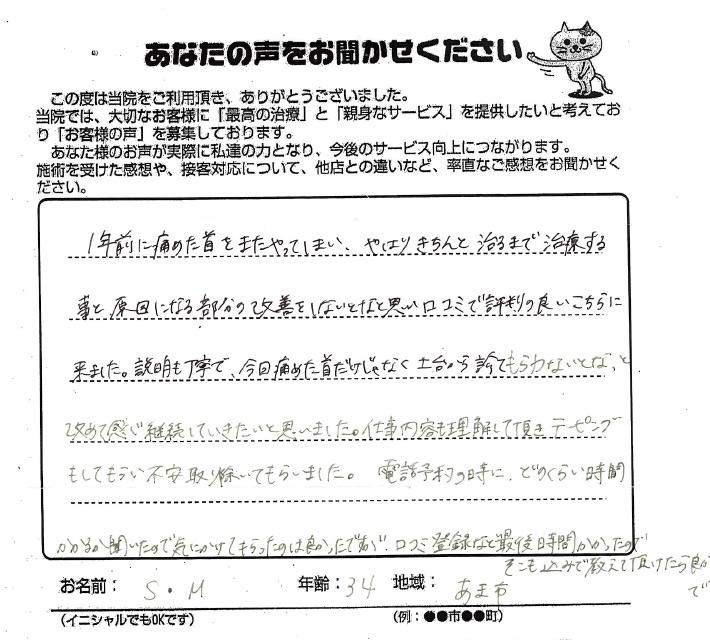 あなたの声をお聞かせください
この度は当院をご利用頂き、ありがとうございました。
当院では、大切なお客様に「最高の治療」と「親身なサービス」を提供したいと考えてお
り「お客様の声」を募集しております。
あなた様のお声が実際に私達の力となり、今後のサービス向上につながります。
施術を受けた感想や、接客対応について、他店との違いなど、率直なご感想をお聞かせく
ださい。
1年前に痛めた首をまたやってしまい、やはりきちんと治るまで治療する
事と原因になる部分の改善をしないとなと思い口コミで評判の良いこちらに
来ました。説明も丁寧で、今回痛めた首だけじゃなく土台から診てもらわないとな、と
改めて感じ継続していきたいと思いました。仕事内容も理解して頂きテーピング
もしてもらい不安取り除いてもらいました。 電話予約の時に、どのくらい時間
かかるか聞いたので気にかけてもらったのは良かったですが、口コミ登録など最後時間かかったので
そこも込みで教えて頂けたら良かった
で
お名前: S・M 年齢:34 地域: あま市
(イニシャルでもOKです) (例:●●市●●町)